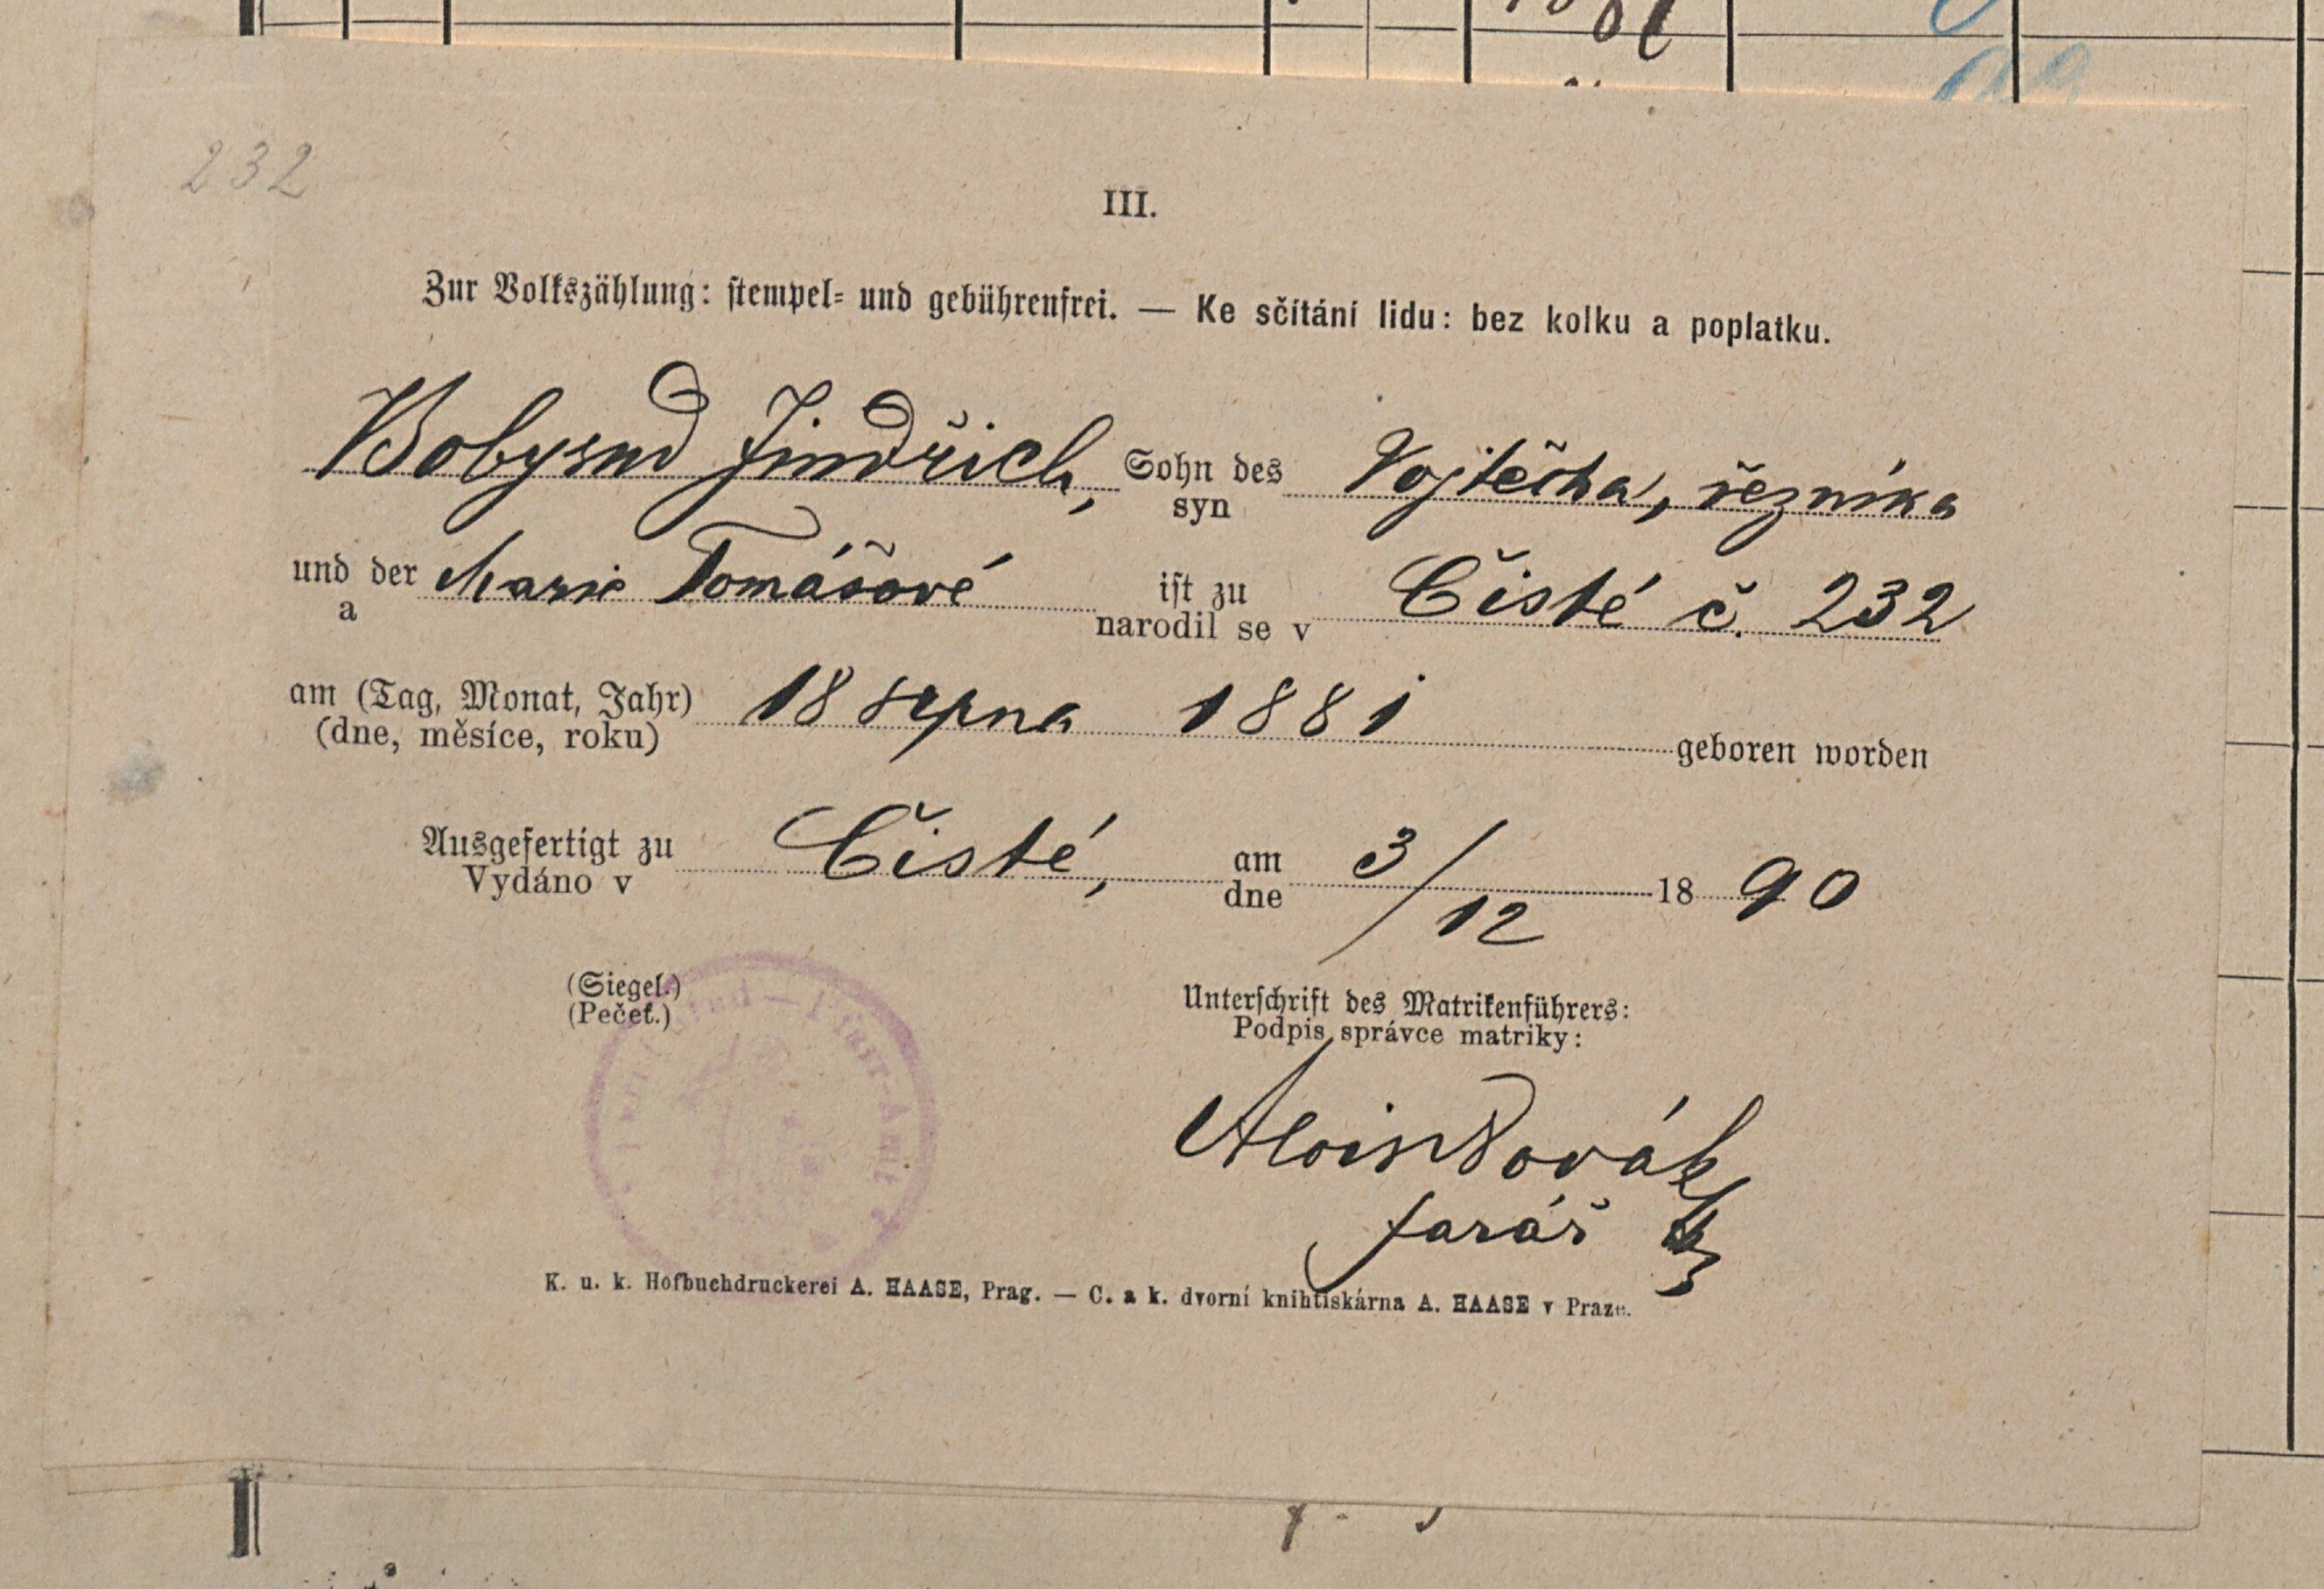 232
III.
Zur Volkszählung: stempel- und gebührenfrei. — Ke sčítání lidu: bez kolku a poplatku.
Jindřich, Sohn des Vojtěcha, řezníka
syn
und der Marie Tomášové ist zu Čisté č. 232
a narodil se v
am (Tag, Monat, Jahr) 18 srpna 1881
(dne, měsíce, roku) geboren worden
Ausgefertigt zu Čisté, am 3/12 1890
Vydáno v dne
(Siegel.)
(Pečeť.)
Unterschrift des Matrikenführers:
Podpis správce matriky:
Alois Novák
farář
K. u. k. Hofbuchdruckerei A. HAASE, Prag. — C. a k. dvorní knihtiskárna A. HAASE v Praze.